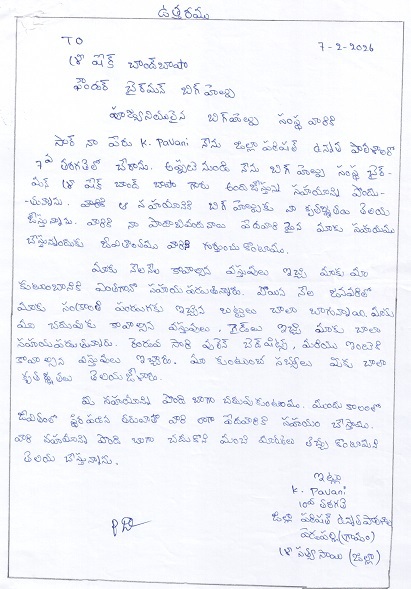 ఉత్తరము
TO
7-2-2026
శ్రీ షేక్ చాంద్‌బాషా
ఫౌండర్ చైర్మన్ బిగ్ హెల్ప్
పూర్వనీయులైన బిగ్‌హెల్ప్ సంస్థ వారికి
సార్ నా పేరు K. Pavani నేను జిల్లా పరిషత్ ఉన్నత పాఠశాలలో
7వ తరగతిలో చేరాను. అప్పటి నుండి నేను బిగ్ హెల్ప్ సంస్థ చైర్-
మన్ శ్రీ షేక్ చాంద్ బాషా గారు అందజేస్తున్న సహాయాన్ని పొందు-
-తున్నాను. వారికి ఆ సహాయానికి బిగ్ హెల్ప్‌కు నా కృతజ్ఞతలు తెలియ
జేస్తున్నాను. వారికి నా పాదాభివందనాలు పేదవారికైన మాకు సహాయము
చేస్తున్నందుకు జీవితాంతము వారిని గుర్తుంచు కుంటాము.
మాకు నెలనెల కావాల్సిన వస్తువులు ఇచ్చి మాకు మా
కుటుంబానికి ఎంతగానో సహాయ పడుతున్నారు. పోయిన నెల జనవరిలో
మాకు సంక్రాంతి పండుగకు ఇచ్చిన బట్టలు చాలా బాగున్నాయి. మాకు
మా చదువుకు కావాల్సిన వస్తువులు, గైడ్‌లు ఇచ్చి మాకు చాలా
సహాయపడుతున్నారు. రెండువ సారి వులెన్ బెడ్‌షీట్స్, మరియు ఇంటికి
కావాల్సిన వస్తువులు ఇచ్చారు. మా కుటుంబ సభ్యులు మీకు చాలా
కృతజ్ఞతలు తెలియజేసారు.
మీ సహాయాన్ని పొంది బాగా చదువుకుంటాము. ముందు కాలంలో
జీవితంలో స్థిరపడిన తరువాత వారి లాగా పేదవారికి సహాయం చేస్తాము.
వారి సహాయాన్ని పొంది బాగా చదువుకొని మంచి మార్కులు తెచ్చు కుంటామని
తెలియ చేస్తున్నాను.
ఇట్లు
K. Pavani
10వ తరగతి
జిల్లా పరిషత్ ఉన్నత పాఠశాల
(గ్రామం)
శ్రీ సత్య సాయి (జిల్లా)